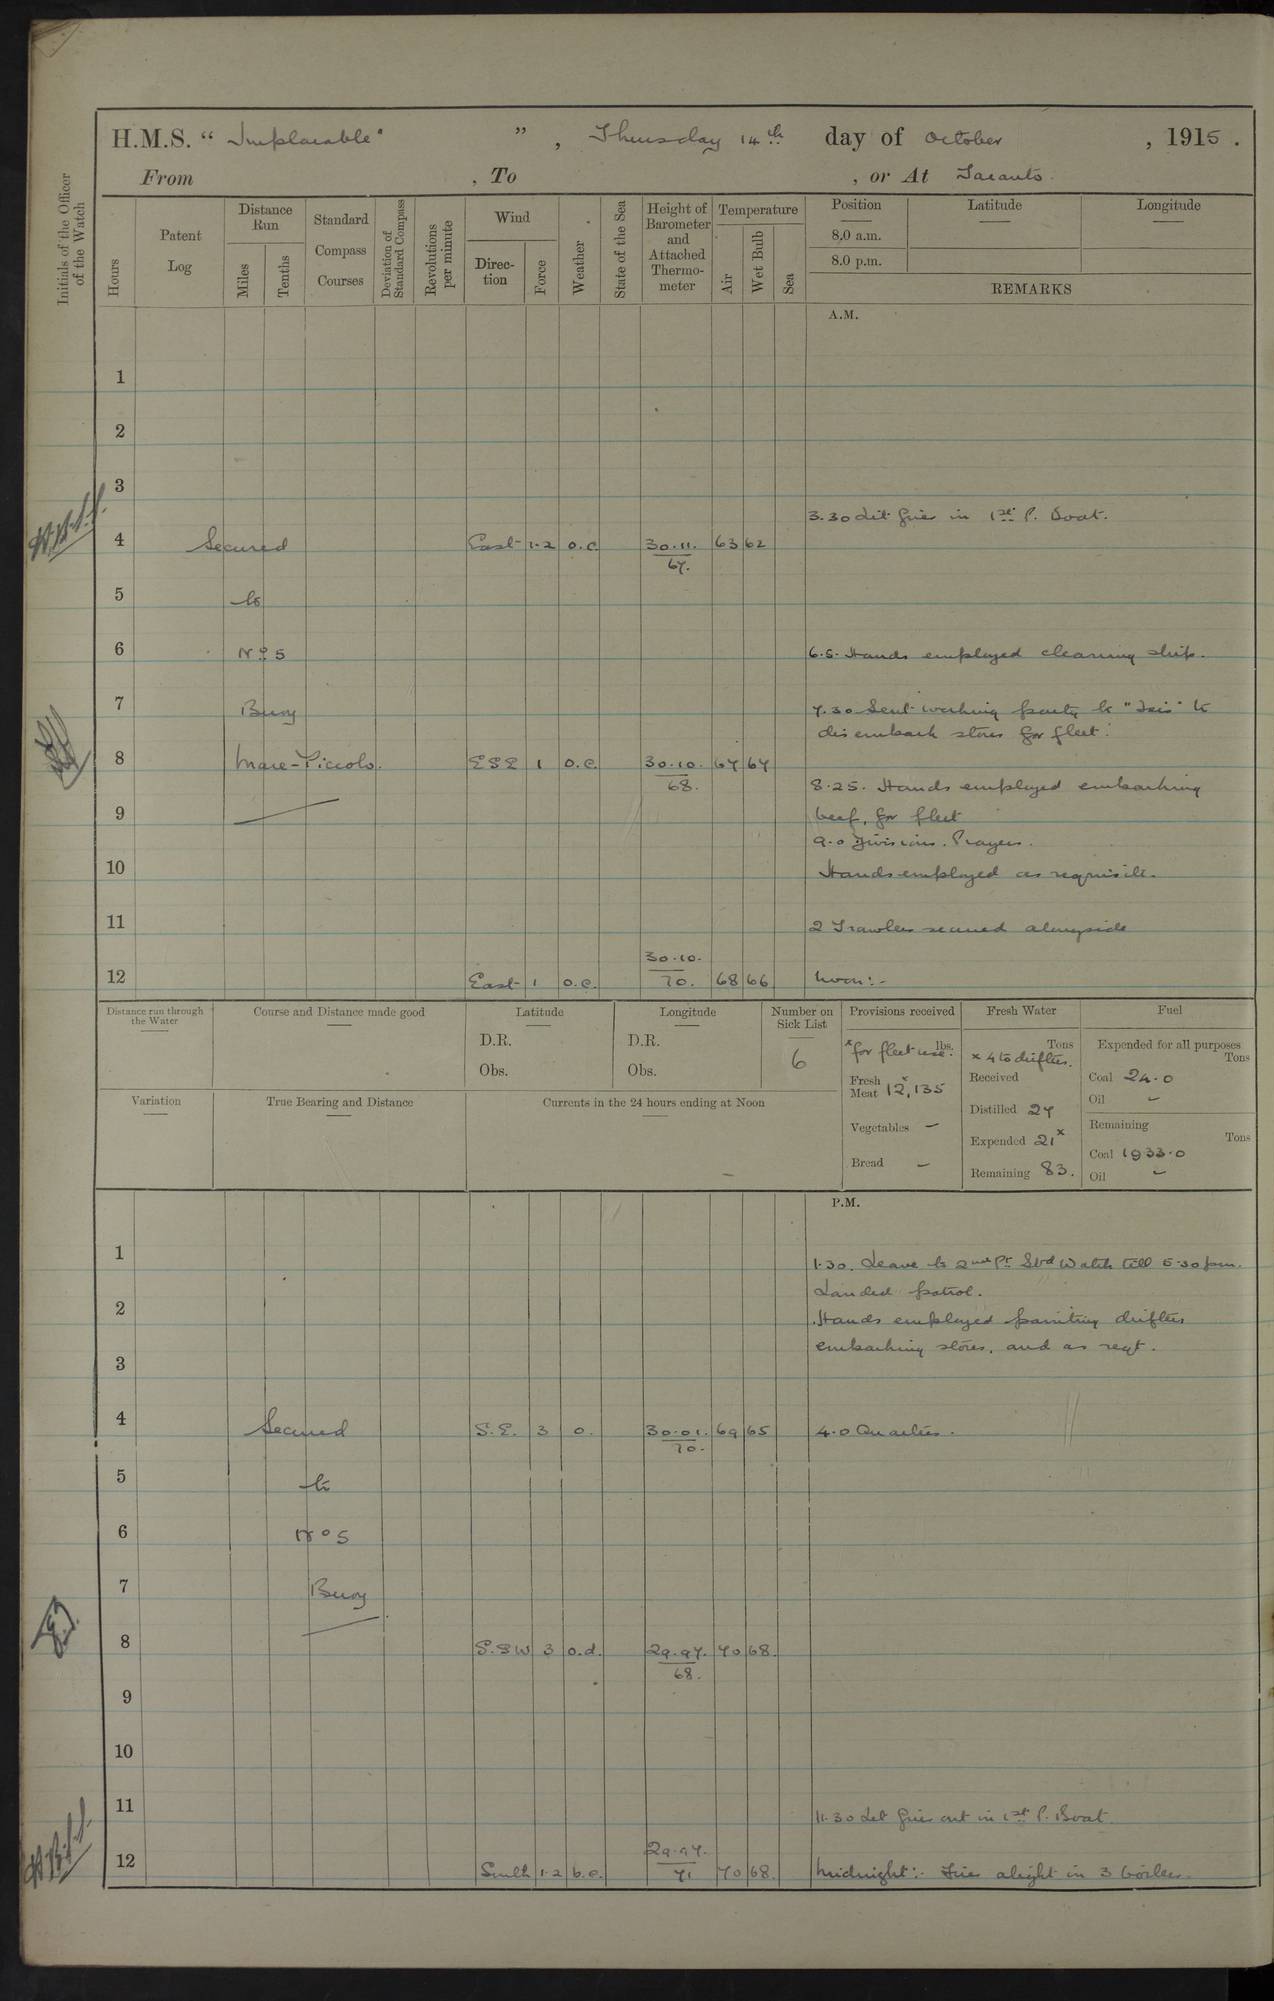 H.M.S. “ Implacable " ” , Thursday 14th day of October , 1915 .
From , To , or At Taranto.
Initials of the Officer of the Watch
Hours
Patent Log
Distance Run
Miles
Tenths
Standard Compass Courses
Deviation of Standard Compass
Revolutions per minute
Wind
Direc-tion
Force
Weather
State of the Sea
Height of Barometer and Attached Thermo-meter
Temperature
Air
Wet Bulb
Sea
Position Latitude Longitude
8.0 a.m.
8.0 p.m.
REMARKS
A.M.
1
2
3
3.30 Lit fires in 1st P. Boat.
4 Secured East 1-2 o.c. 30.11. 63 62
67.
5 to
6 No 5 6.5. Hands employed cleaning ship.
7 Buoy 7.30 Sent working party to "Isis" to
disembark stores for fleet.
8 Mare-Piccolo. ESE 1 o.c. 30.10. 67 64
68.
8.25. Hands employed embarking
9 beef, for fleet
9.0 Divisions. Prayers.
10 Hands employed as requisite.
11 2 Trawlers secured alongside
30.10.
12 East 1 o.c. 70. 68 66 Noon:-
Distance run through the Water
Course and Distance made good
Latitude
D.R.
Obs.
Longitude
D.R.
Obs.
Number on Sick List
6
Provisions received
x for fleet use. lbs.
Fresh Meat 12,135 x
Vegetables –
Bread –
Fresh Water
Tons
x 4 to drifters.
Received
Distilled 27
Expended 21 x
Remaining 83.
Fuel
Expended for all purposes
Tons
Coal 24.0
Oil –
Remaining
Tons
Coal 1933.0
Oil –
Variation
True Bearing and Distance
Currents in the 24 hours ending at Noon
P.M.
1 1.30. Leave to 2nd Pt Stbd Watch till 5.30 pm.
Landed patrol.
2 Hands employed painting drifters
embarking stores, and as reqt.
3
4 Secured S.E. 3 o. 30.01. 69 65 4.0 Quarters.
70.
5 to
6 No 5
7 Buoy
8 S.SW 3 o.d. 29.97. 70 68.
68.
9
10
11 11.30 Let fires out in 1st P. Boat.
29.97.
12 South 1-2 b.c. 71 70 68. Midnight:- Fires alight in 3 boilers.